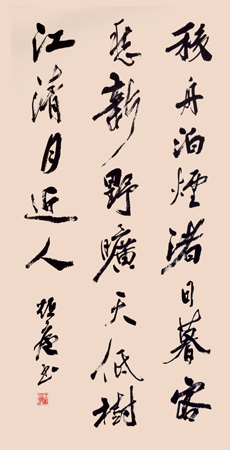 移舟泊煙渚日暮客
愁新野曠天低樹
江清月近人